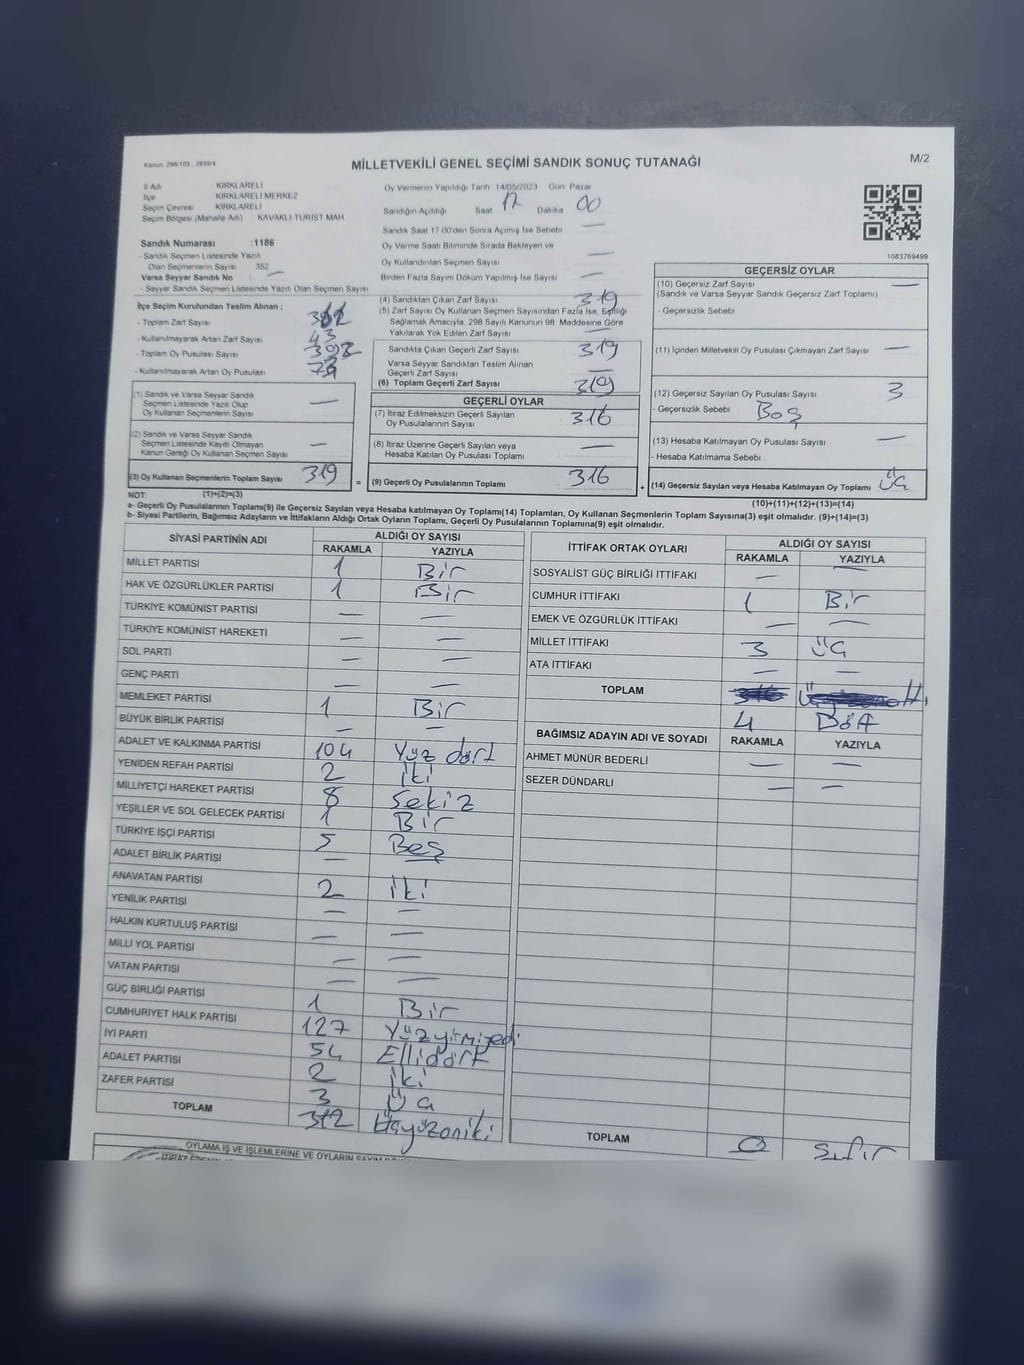 Kanun: 298/105 , 2839/4
MİLLETVEKİLİ GENEL SEÇİMİ SANDIK SONUÇ TUTANAĞI
M/2
İl Adı KIRKLARELİ
İlçe KIRKLARELİ MERKEZ
Seçim Çevresi KIRKLARELİ
Seçim Bölgesi (Mahalle Adı) KAVAKLI-TURİST MAH
Oy Vermenin Yapıldığı Tarih 14/05/2023 Gün: Pazar
Sandığın Açıldığı Saat 17 Dakika 00
Sandık Saat 17.00'den Sonra Açılmış İse Sebebi —
Oy Verme Saati Bitiminde Sırada Bekleyen ve
Oy Kullandırılan Seçmen Sayısı —
Birden Fazla Sayım Döküm Yapılmış İse Sayısı —
1083769499
Sandık Numarası :1186
- Sandık Seçmen Listesinde Yazılı
Olan Seçmenlerin Sayısı 352
Varsa Seyyar Sandık No —
- Seyyar Sandık Seçmen Listesinde Yazılı Olan Seçmen Sayısı
İlçe Seçim Kurulundan Teslim Alınan :
- Toplam Zarf Sayısı
- Kullanılmayarak Artan Zarf Sayısı 43
- Toplam Oy Pusulası Sayısı
- Kullanılmayarak Artan Oy Pusulası
(1) Sandık ve Varsa Seyyar Sandık
Seçmen Listesinde Yazılı Olup
Oy Kullanan Seçmenlerin Sayısı —
(2) Sandık ve Varsa Seyyar Sandık
Seçmen Listesinde Kayıtlı Olmayan
Kanun Gereği Oy Kullanan Seçmen Sayısı —
(3) Oy Kullanan Seçmenlerin Toplam Sayısı 319
(1)+(2)=(3)
(4) Sandıktan Çıkan Zarf Sayısı 319
(5) Zarf Sayısı Oy Kullanan Seçmen Sayısından Fazla İse, Eşitliği
Sağlamak Amacıyla, 298 Sayılı Kanunun 98. Maddesine Göre
Yakılarak Yok Edilen Zarf Sayısı —
Sandıkta Çıkan Geçerli Zarf Sayısı 319
Varsa Seyyar Sandıktan Teslim Alınan
Geçerli Zarf Sayısı —
(6) Toplam Geçerli Zarf Sayısı 319
GEÇERLİ OYLAR
(7) İtiraz Edilmeksizin Geçerli Sayılan
Oy Pusulalarının Sayısı 316
(8) İtiraz Üzerine Geçerli Sayılan veya
Hesaba Katılan Oy Pusulası Toplamı —
= (9) Geçerli Oy Pusulalarının Toplamı 316
GEÇERSİZ OYLAR
(10) Geçersiz Zarf Sayısı —
(Sandık ve Varsa Seyyar Sandık Geçersiz Zarf Toplamı)
- Geçersizlik Sebebi
(11) İçinden Milletvekili Oy Pusulası Çıkmayan Zarf Sayısı —
(12) Geçersiz Sayılan Oy Pusulası Sayısı 3
- Geçersizlik Sebebi : Boş
(13) Hesaba Katılmayan Oy Pusulası Sayısı —
- Hesaba Katılmama Sebebi :
+ (14) Geçersiz Sayılan veya Hesaba Katılmayan Oy Toplamı Üç
(10)+(11)+(12)+(13)=(14)
NOT:
a- Geçerli Oy Pusulalarının Toplamı(9) ile Geçersiz Sayılan veya Hesaba Katılmayan Oy Toplamı(14) Toplamları, Oy Kullanan Seçmenlerin Toplam Sayısına(3) eşit olmalıdır. (9)+(14)=(3)
b- Siyasi Partilerin, Bağımsız Adayların ve İttifakların Aldığı Ortak Oyların Toplamı, Geçerli Oy Pusulalarının Toplamına(9) eşit olmalıdır.
SİYASİ PARTİNİN ADI ALDIĞI OY SAYISI
RAKAMLA YAZIYLA
MİLLET PARTİSİ 1 Bir
HAK VE ÖZGÜRLÜKLER PARTİSİ 1 Bir
TÜRKİYE KOMÜNİST PARTİSİ — —
TÜRKİYE KOMÜNİST HAREKETİ — —
SOL PARTİ — —
GENÇ PARTİ — —
MEMLEKET PARTİSİ 1 Bir
BÜYÜK BİRLİK PARTİSİ — —
ADALET VE KALKINMA PARTİSİ 104 Yüz dört
YENİDEN REFAH PARTİSİ 2 İki
MİLLİYETÇİ HAREKET PARTİSİ 8 Sekiz
YEŞİLLER VE SOL GELECEK PARTİSİ 1 Bir
TÜRKİYE İŞÇİ PARTİSİ 5 Beş
ADALET BİRLİK PARTİSİ — —
ANAVATAN PARTİSİ 2 İki
YENİLİK PARTİSİ — —
HALKIN KURTULUŞ PARTİSİ — —
MİLLİ YOL PARTİSİ — —
VATAN PARTİSİ — —
GÜÇ BİRLİĞİ PARTİSİ 1 Bir
CUMHURİYET HALK PARTİSİ 127 Yüzyirmiyedi
İYİ PARTİ 54 Ellidört
ADALET PARTİSİ 2 İki
ZAFER PARTİSİ 3 Üç
TOPLAM 312 Üçyüzoniki
İTTİFAK ORTAK OYLARI ALDIĞI OY SAYISI
RAKAMLA YAZIYLA
SOSYALİST GÜÇ BİRLİĞİ İTTİFAKI — —
CUMHUR İTTİFAKI 1 Bir
EMEK VE ÖZGÜRLÜK İTTİFAKI — —
MİLLET İTTİFAKI 3 Üç
ATA İTTİFAKI — —
TOPLAM
4 Dört
BAĞIMSIZ ADAYIN ADI VE SOYADI RAKAMLA YAZIYLA
AHMET MÜNÜR BEDERLİ — —
SEZER DÜNDARLI — —
TOPLAM 0 Sıfır
OYLAMA İŞ VE İŞLEMLERİNE VE OYLARIN SAYIM